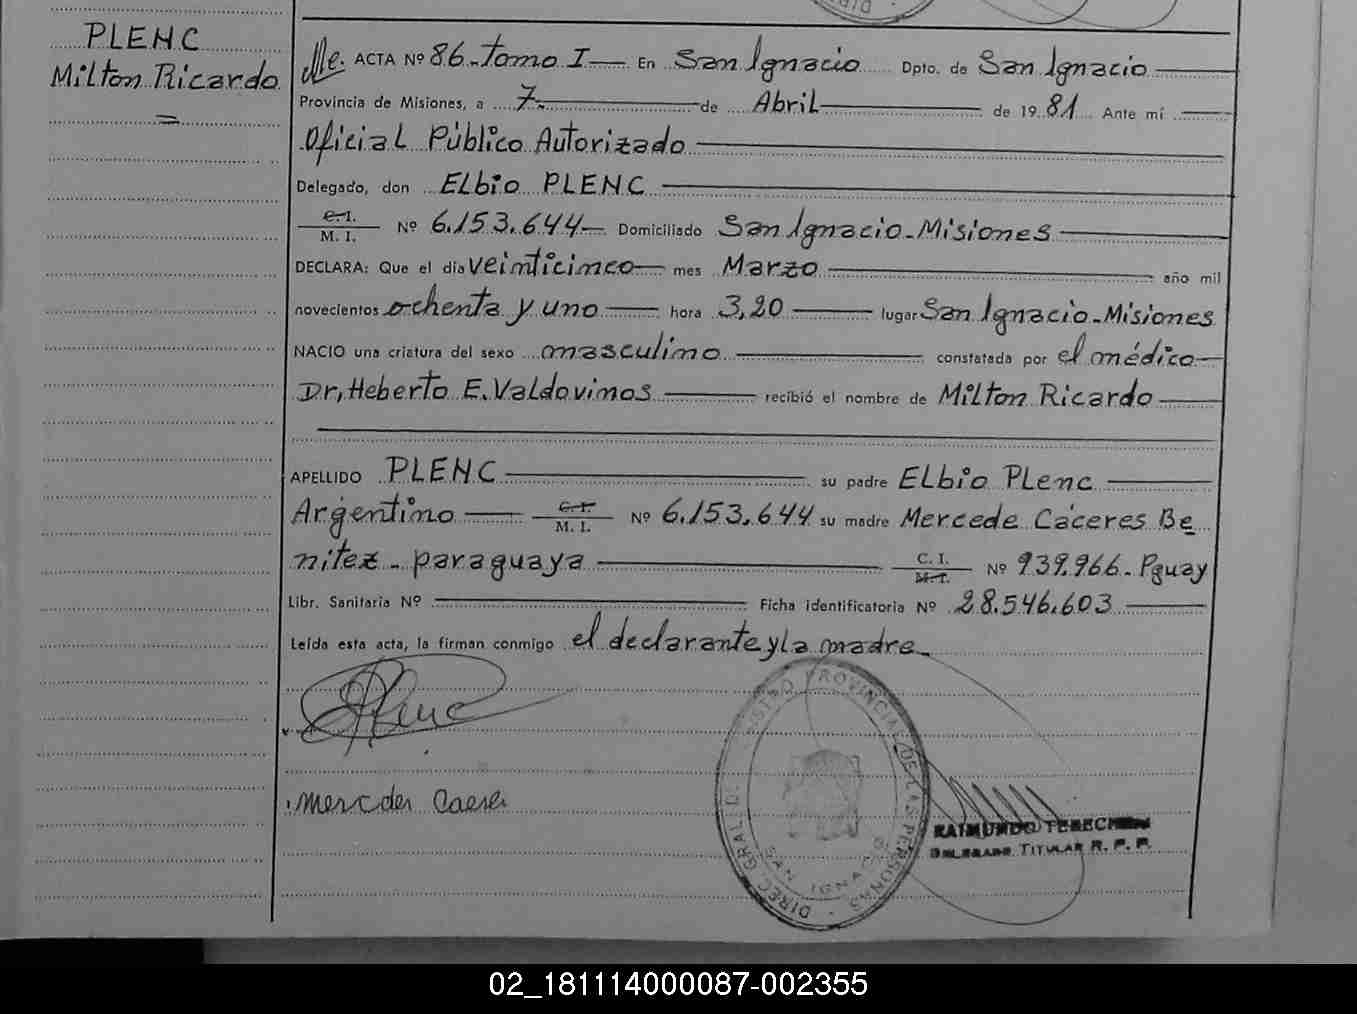 PLENC
Milton Ricardo
=
ACTA Nº 86.-Tomo I— En San Ignacio Dpto. de San Ignacio
Provincia de Misiones, a 7.- de Abril de 19 81 Ante mí
Oficial Público Autorizado
Delegado, don Elbio PLENC
C. I.
M. I. Nº 6.153.644— Domiciliado San Ignacio-Misiones
DECLARA: Que el día veinticinco mes Marzo año mil
novecientos ochenta y uno hora 3,20 lugar San Ignacio-Misiones
NACIO una criatura del sexo masculino constatada por el médico
Dr, Heberto E. Valdovinos recibió el nombre de Milton Ricardo
APELLIDO PLENC su padre Elbio Plenc
Argentino C. I. M. I. Nº 6.153.644 su madre Mercede Cáceres Be
nitez - paraguaya C. I. M. I. Nº 939.966.- Pguay
Libr. Sanitaria Nº Ficha identificatoria Nº 28.546.603
Leída esta acta, la firman conmigo el declarante y la madre.
Plenc
Mercdes Caere
DIREC. GRAL. DEL REGISTRO PROVINCIAL DE LAS PERSONAS
SAN IGNACIO
RAIMUNDO
DELEGADO TITULAR R. P. P.
02_181114000087-002355